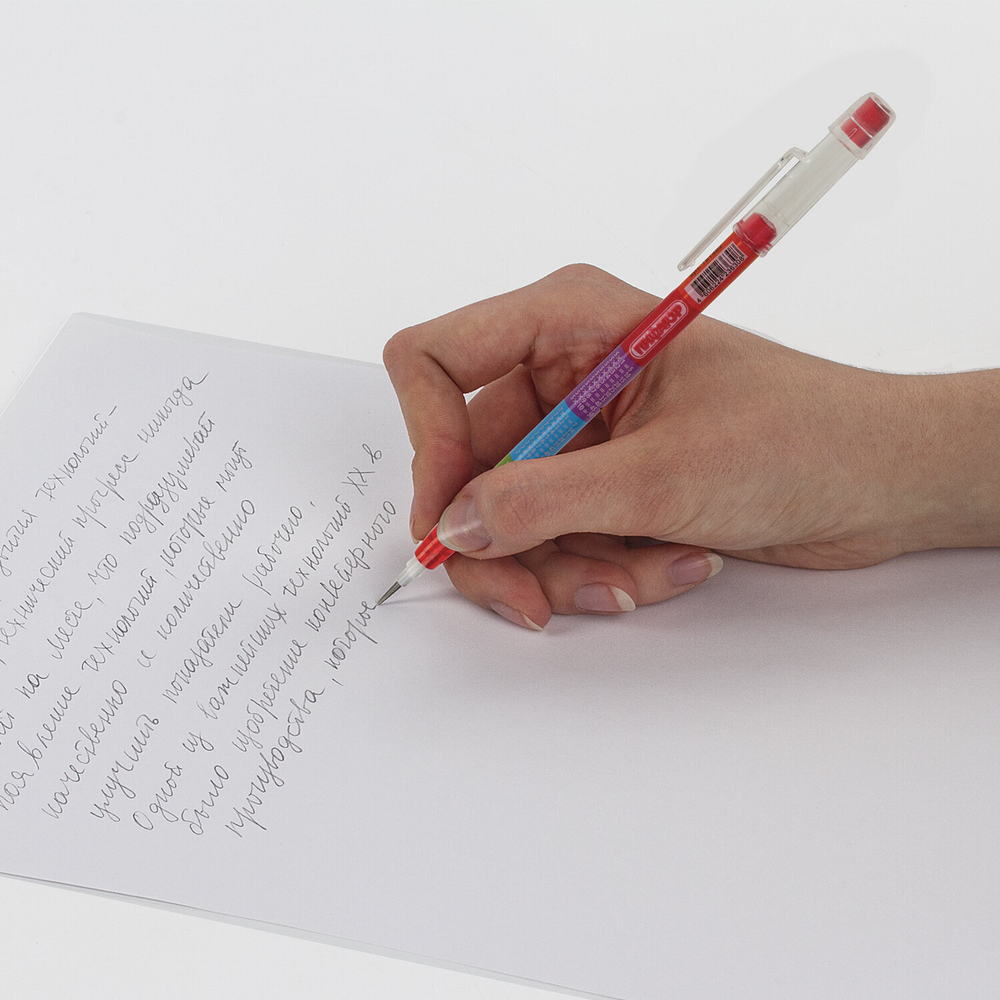 технологий-
технический прогресс никогда
на месте, что подразумевает
появление технологий, которые могут
качественно и количественно
улучшить показатели рабочего.
Одной из важнейших технологий XX в
было изобретение конвейерного
производства, которое
ПИФАГОР